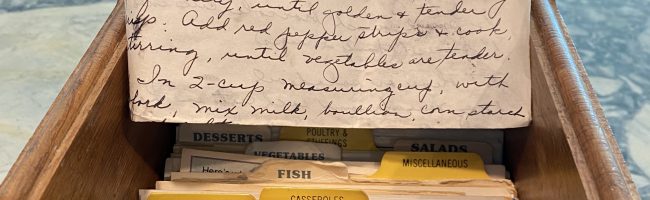 until golden & tender
up. Add red pepper strips & cook,
stirring, until vegetables are tender.
In 2-cup measuring cup, with
mix milk, bouillon, corn starch
DESSERTS
POULTRY &
STUFFINGS
SALADS
VEGETABLES
MISCELLANEOUS
Here's
FISH
CASSEROLES